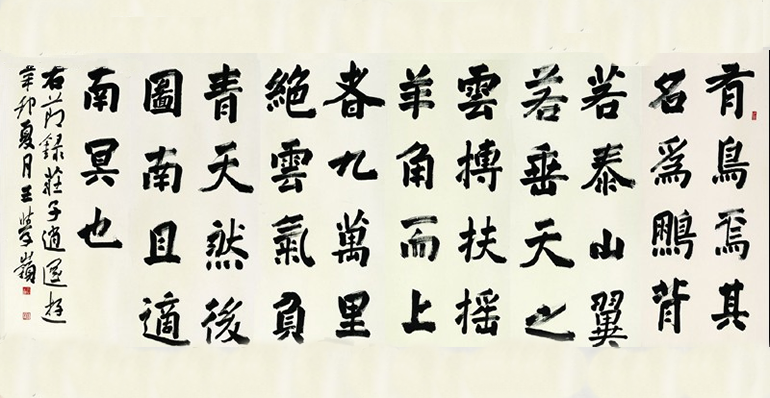 有鳥焉其
名爲鵬背
若泰山翼
若垂天之
雲摶扶摇
羊角而上
者九萬里
絶雲氣負
青天然後
圖南且適
南冥也
右節録莊子逍遥游
辛卯夏月王